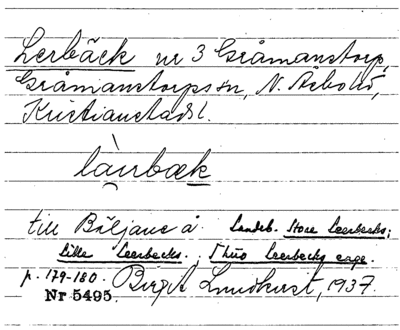 Lerbäck nr 3 Gråmanstorp,
Gråmanstorps sn, N. Åsbo hd,
Kristianstads l.
làirbæk
till Bäljane å. Landeb. Store Leerbecks;
Lille Leerbecks.; Thuo Leerbecks eage.
p. 179-180. Birgit Lundkvist, 1937.
Nr 5495.